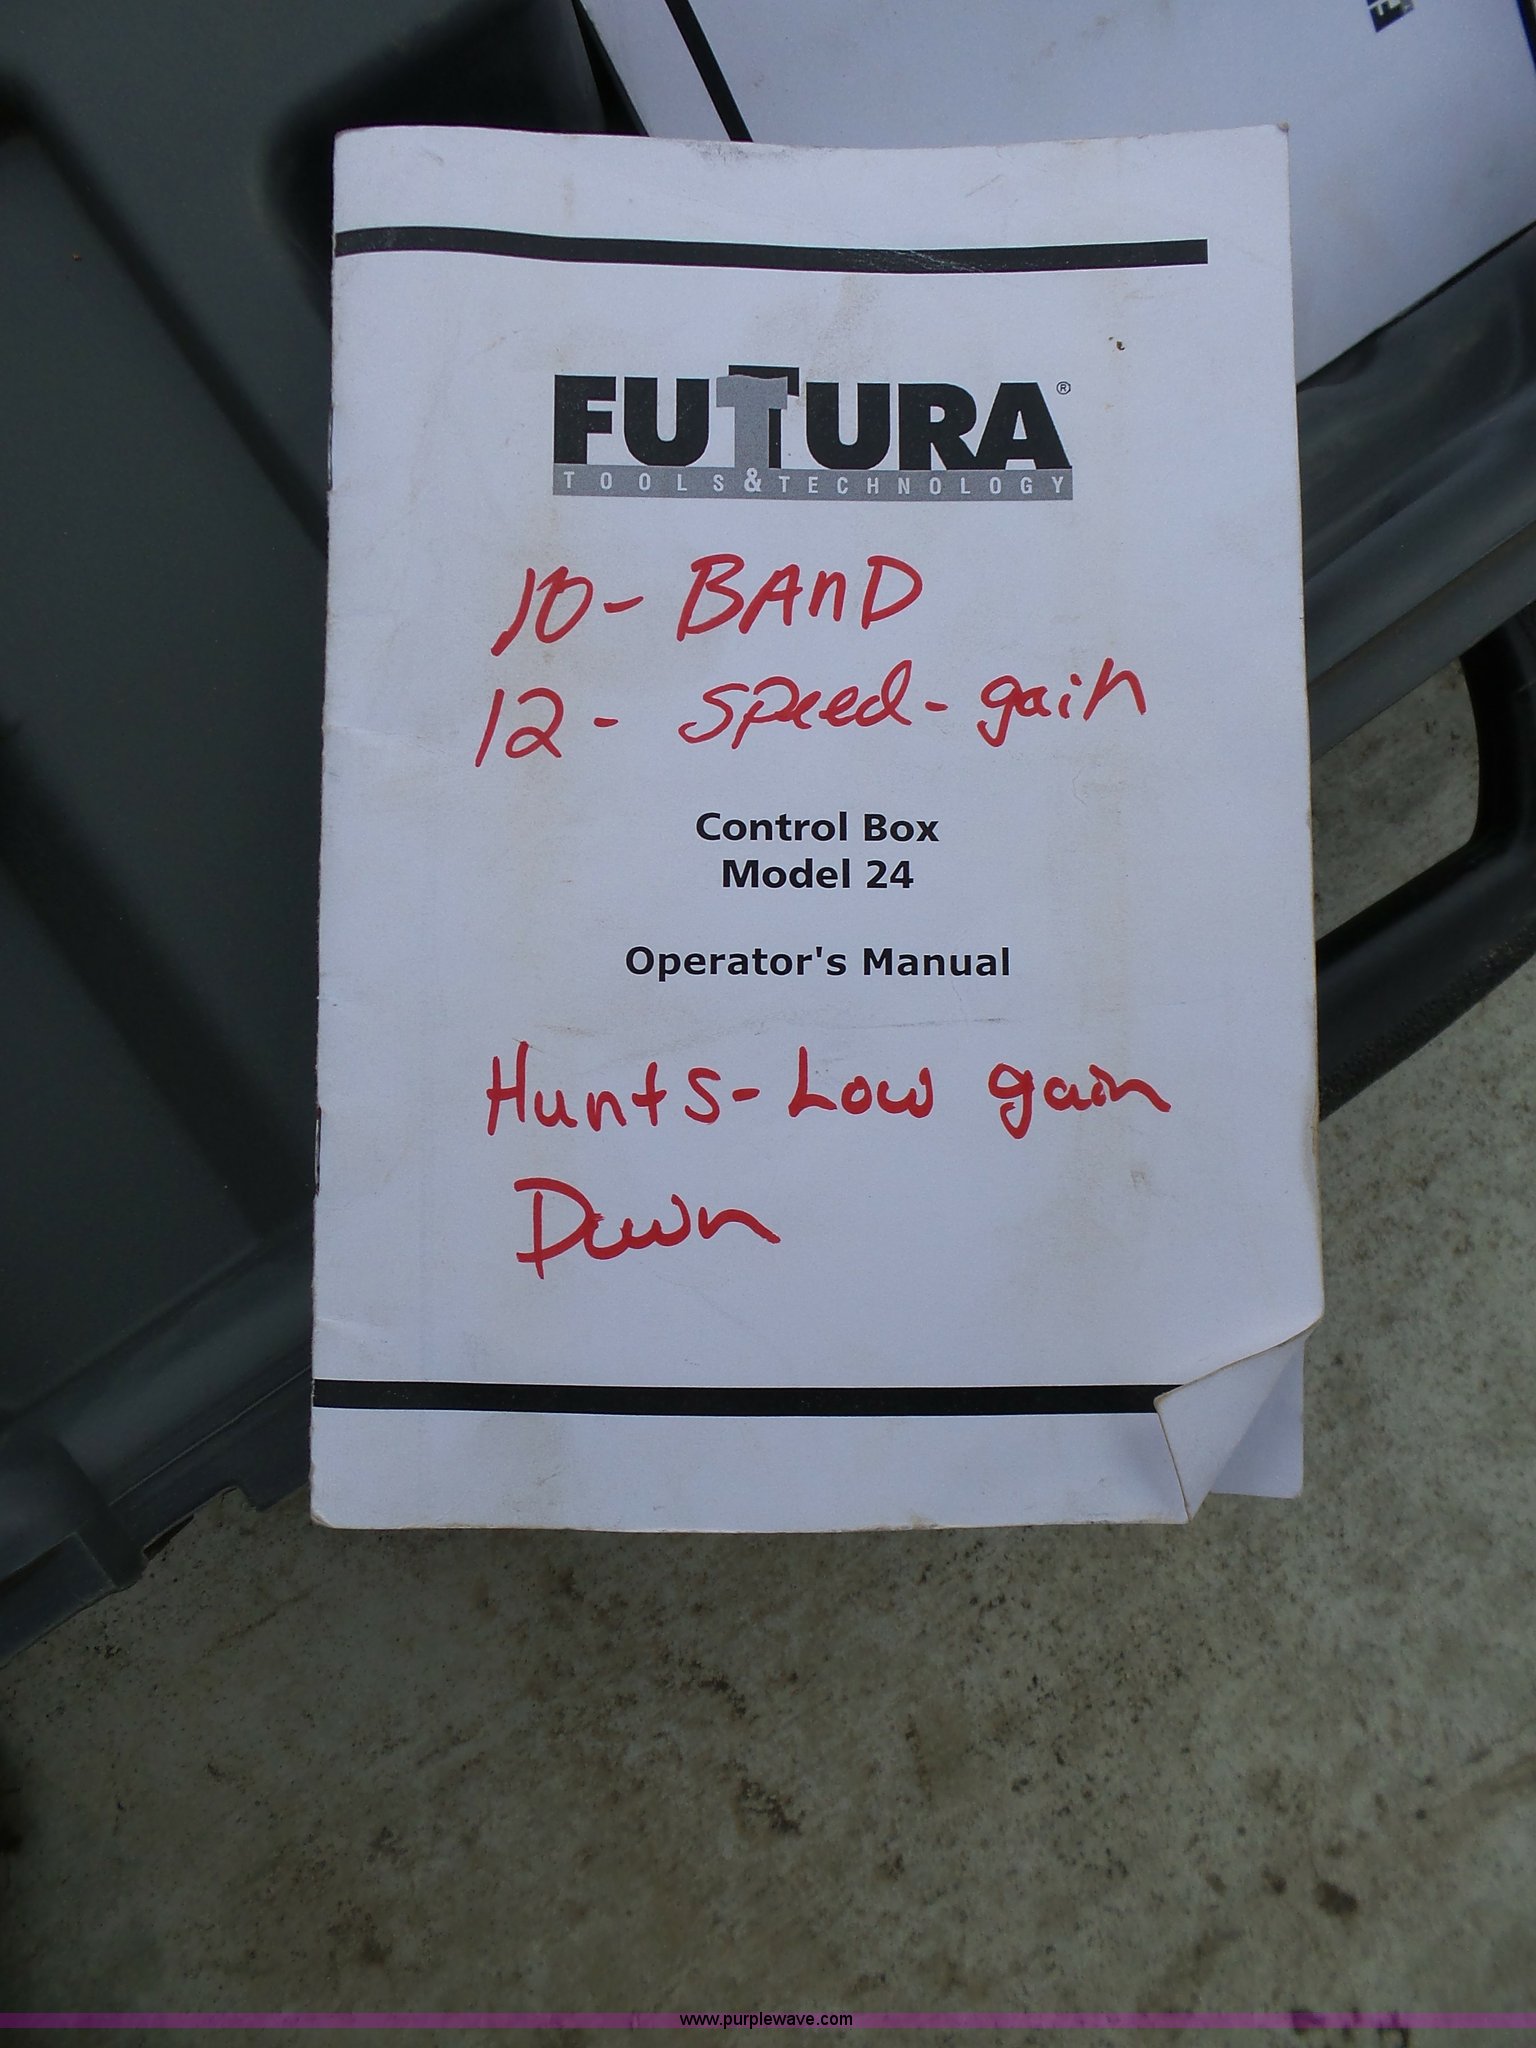 FUTURA®
TOOLS & TECHNOLOGY
10 - BAnD
12 - speed - gain
Control Box
Model 24
Operator's Manual
Hunts - Low gain
Down
www.purplewave.com